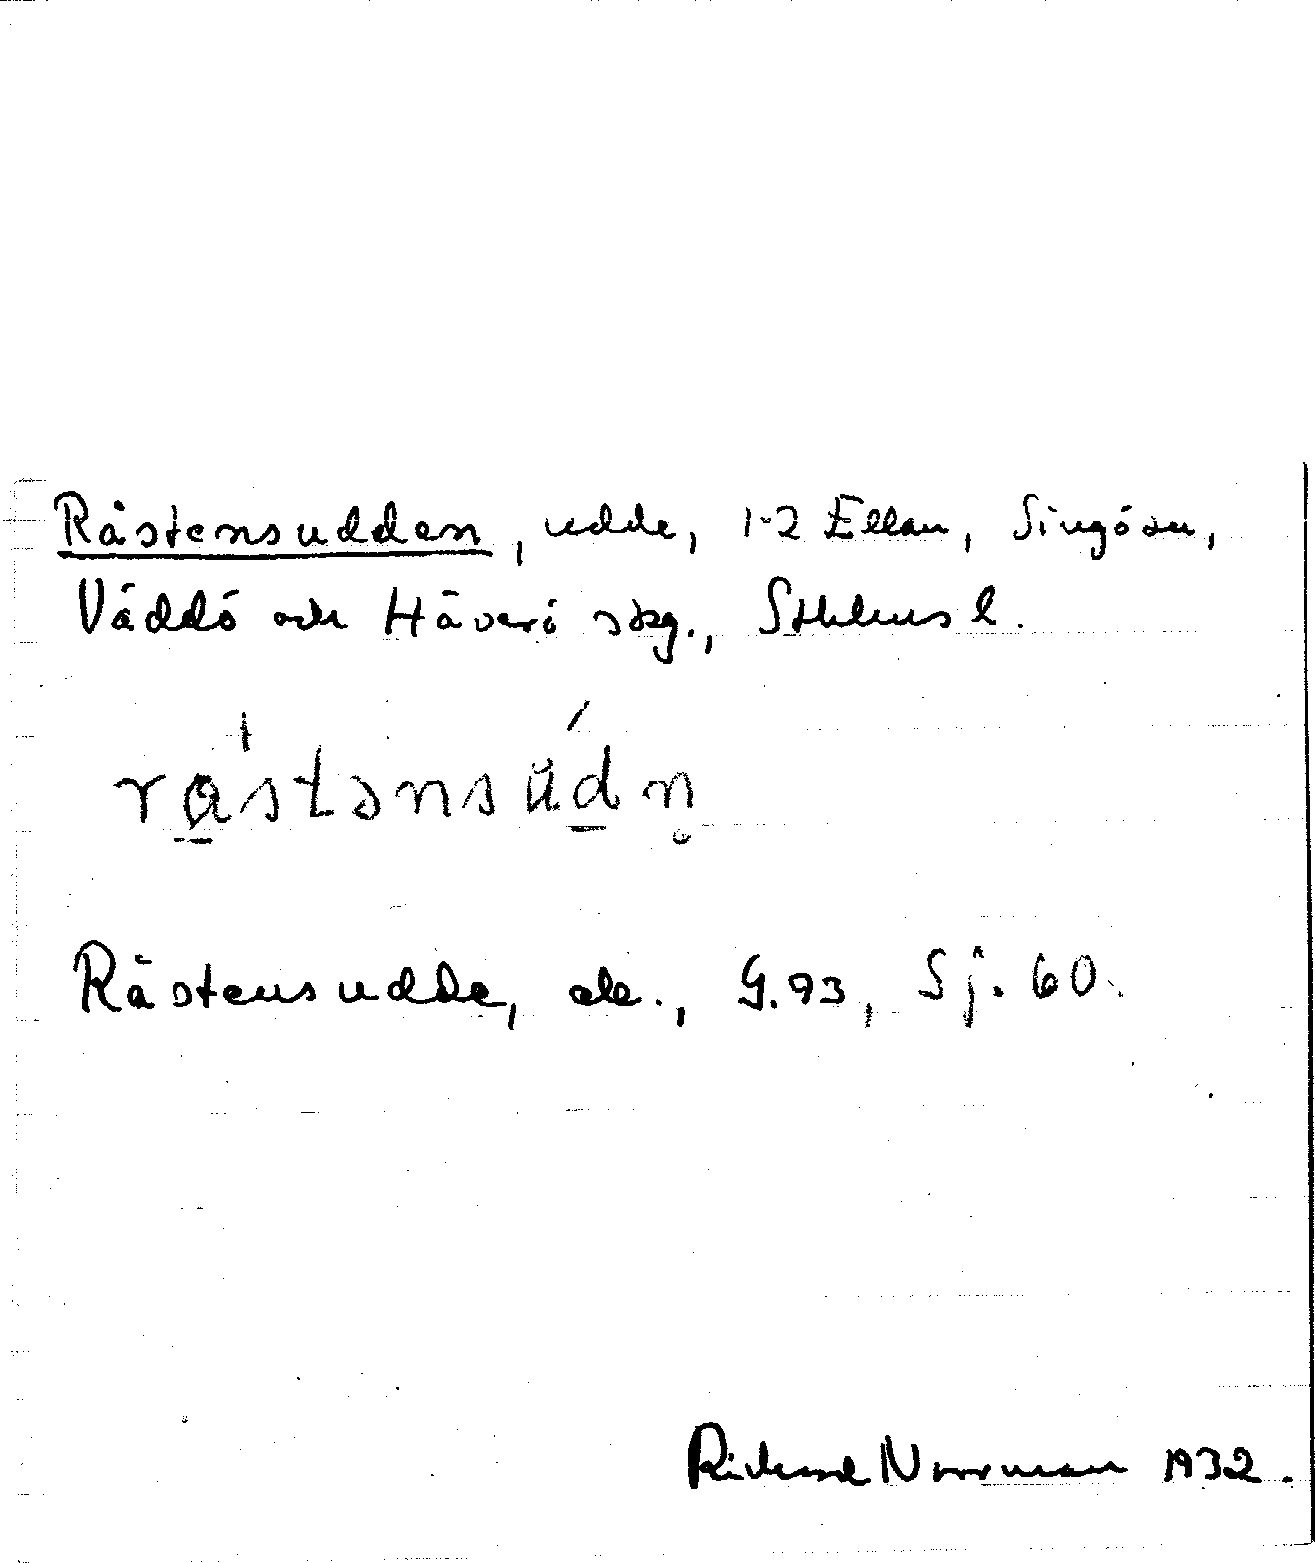 Råstensudden, udde, 1-2 Ellan, Singö sn,
Väddö och Häverö skg., Sthlms l.
råstənsŭdn̥
Råstensudde, ek., G.93, Sj. 60.
Richard Norrman 1932.